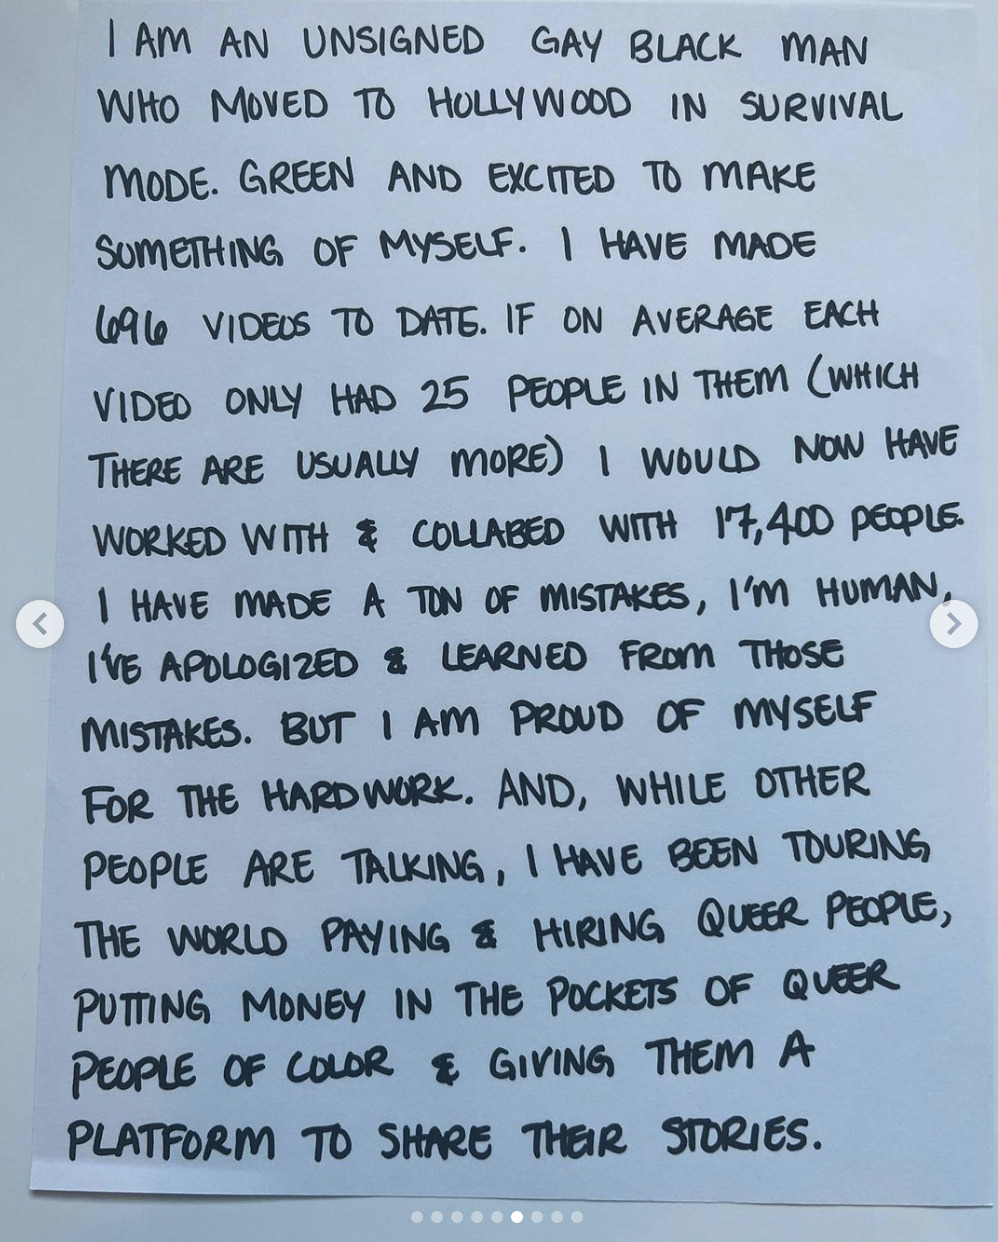 I AM AN UNSIGNED GAY BLACK MAN
WHO MOVED TO HOLLYWOOD IN SURVIVAL
MODE. GREEN AND EXCITED TO MAKE
SOMETHING OF MYSELF. I HAVE MADE
696 VIDEOS TO DATE. IF ON AVERAGE EACH
VIDEO ONLY HAD 25 PEOPLE IN THEM (WHICH
THERE ARE USUALLY MORE) I WOULD NOW HAVE
WORKED WITH & COLLABED WITH 17,400 PEOPLE.
I HAVE MADE A TON OF MISTAKES, I'M HUMAN,
I'VE APOLOGIZED & LEARNED FROM THOSE
MISTAKES. BUT I AM PROUD OF MYSELF
FOR THE HARDWORK. AND, WHILE OTHER
PEOPLE ARE TALKING, I HAVE BEEN TOURING
THE WORLD PAYING & HIRING QUEER PEOPLE,
PUTTING MONEY IN THE POCKETS OF QUEER
PEOPLE OF COLOR & GIVING THEM A
PLATFORM TO SHARE THEIR STORIES.